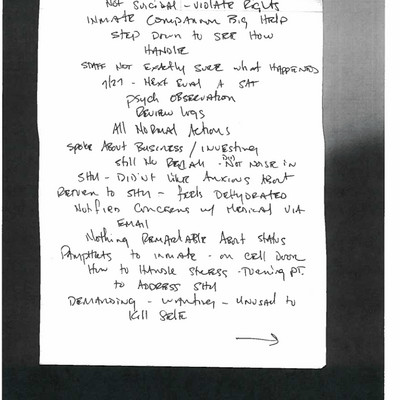 NOT SUICIDAL - VIOLATE RIGHTS
INMATE COMPANION BIG HELP
STEP DOWN TO SEE HOW
HANDLE
STAFF NOT EXACTLY SURE WHAT HAPPENED
7/27 - NEXT EVAL A SAT
PSYCH OBSERVATION
REVIEW LOGS
ALL NORMAL ACTIONS
SPOKE ABOUT BUSINESS / INVESTING
STILL NO RECALL - NOT NOISE IN
SHU - DIDN'T LIKE ANXIOUS ABOUT
RETURN TO SHU - FEELS DEHYDRATED
NOTIFIED CONCERNS W/ MEDICAL VIA
EMAIL
NOTHING REMARKABLE ABOUT STATUS
PAMPHLETS TO INMATE - ON CELL DOOR
HOW TO HANDLE STRESS - TURNING PT.
TO ADDRESS SHU
DEMANDING - WANTING - UNUSUAL TO
KILL SELF